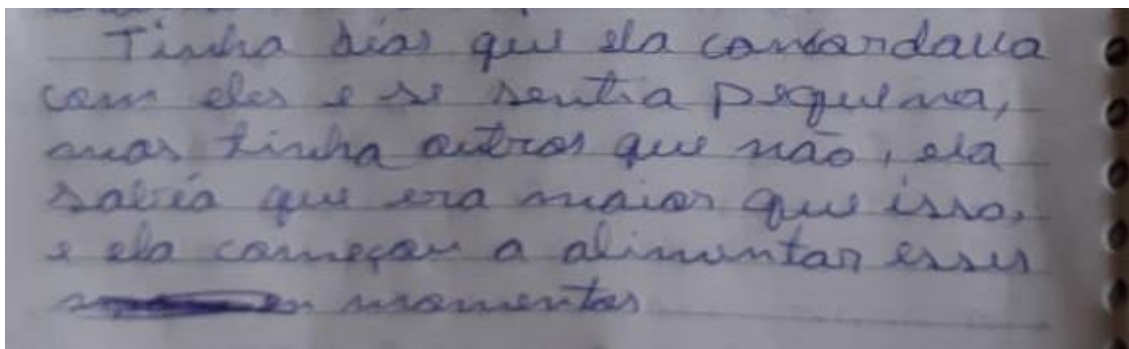 Tinha dias que ela concordava
com eles e se sentia pequena,
mas tinha outros que não, ela
sabia que era maior que isso,
e ela começou a alimentar esses
momentos